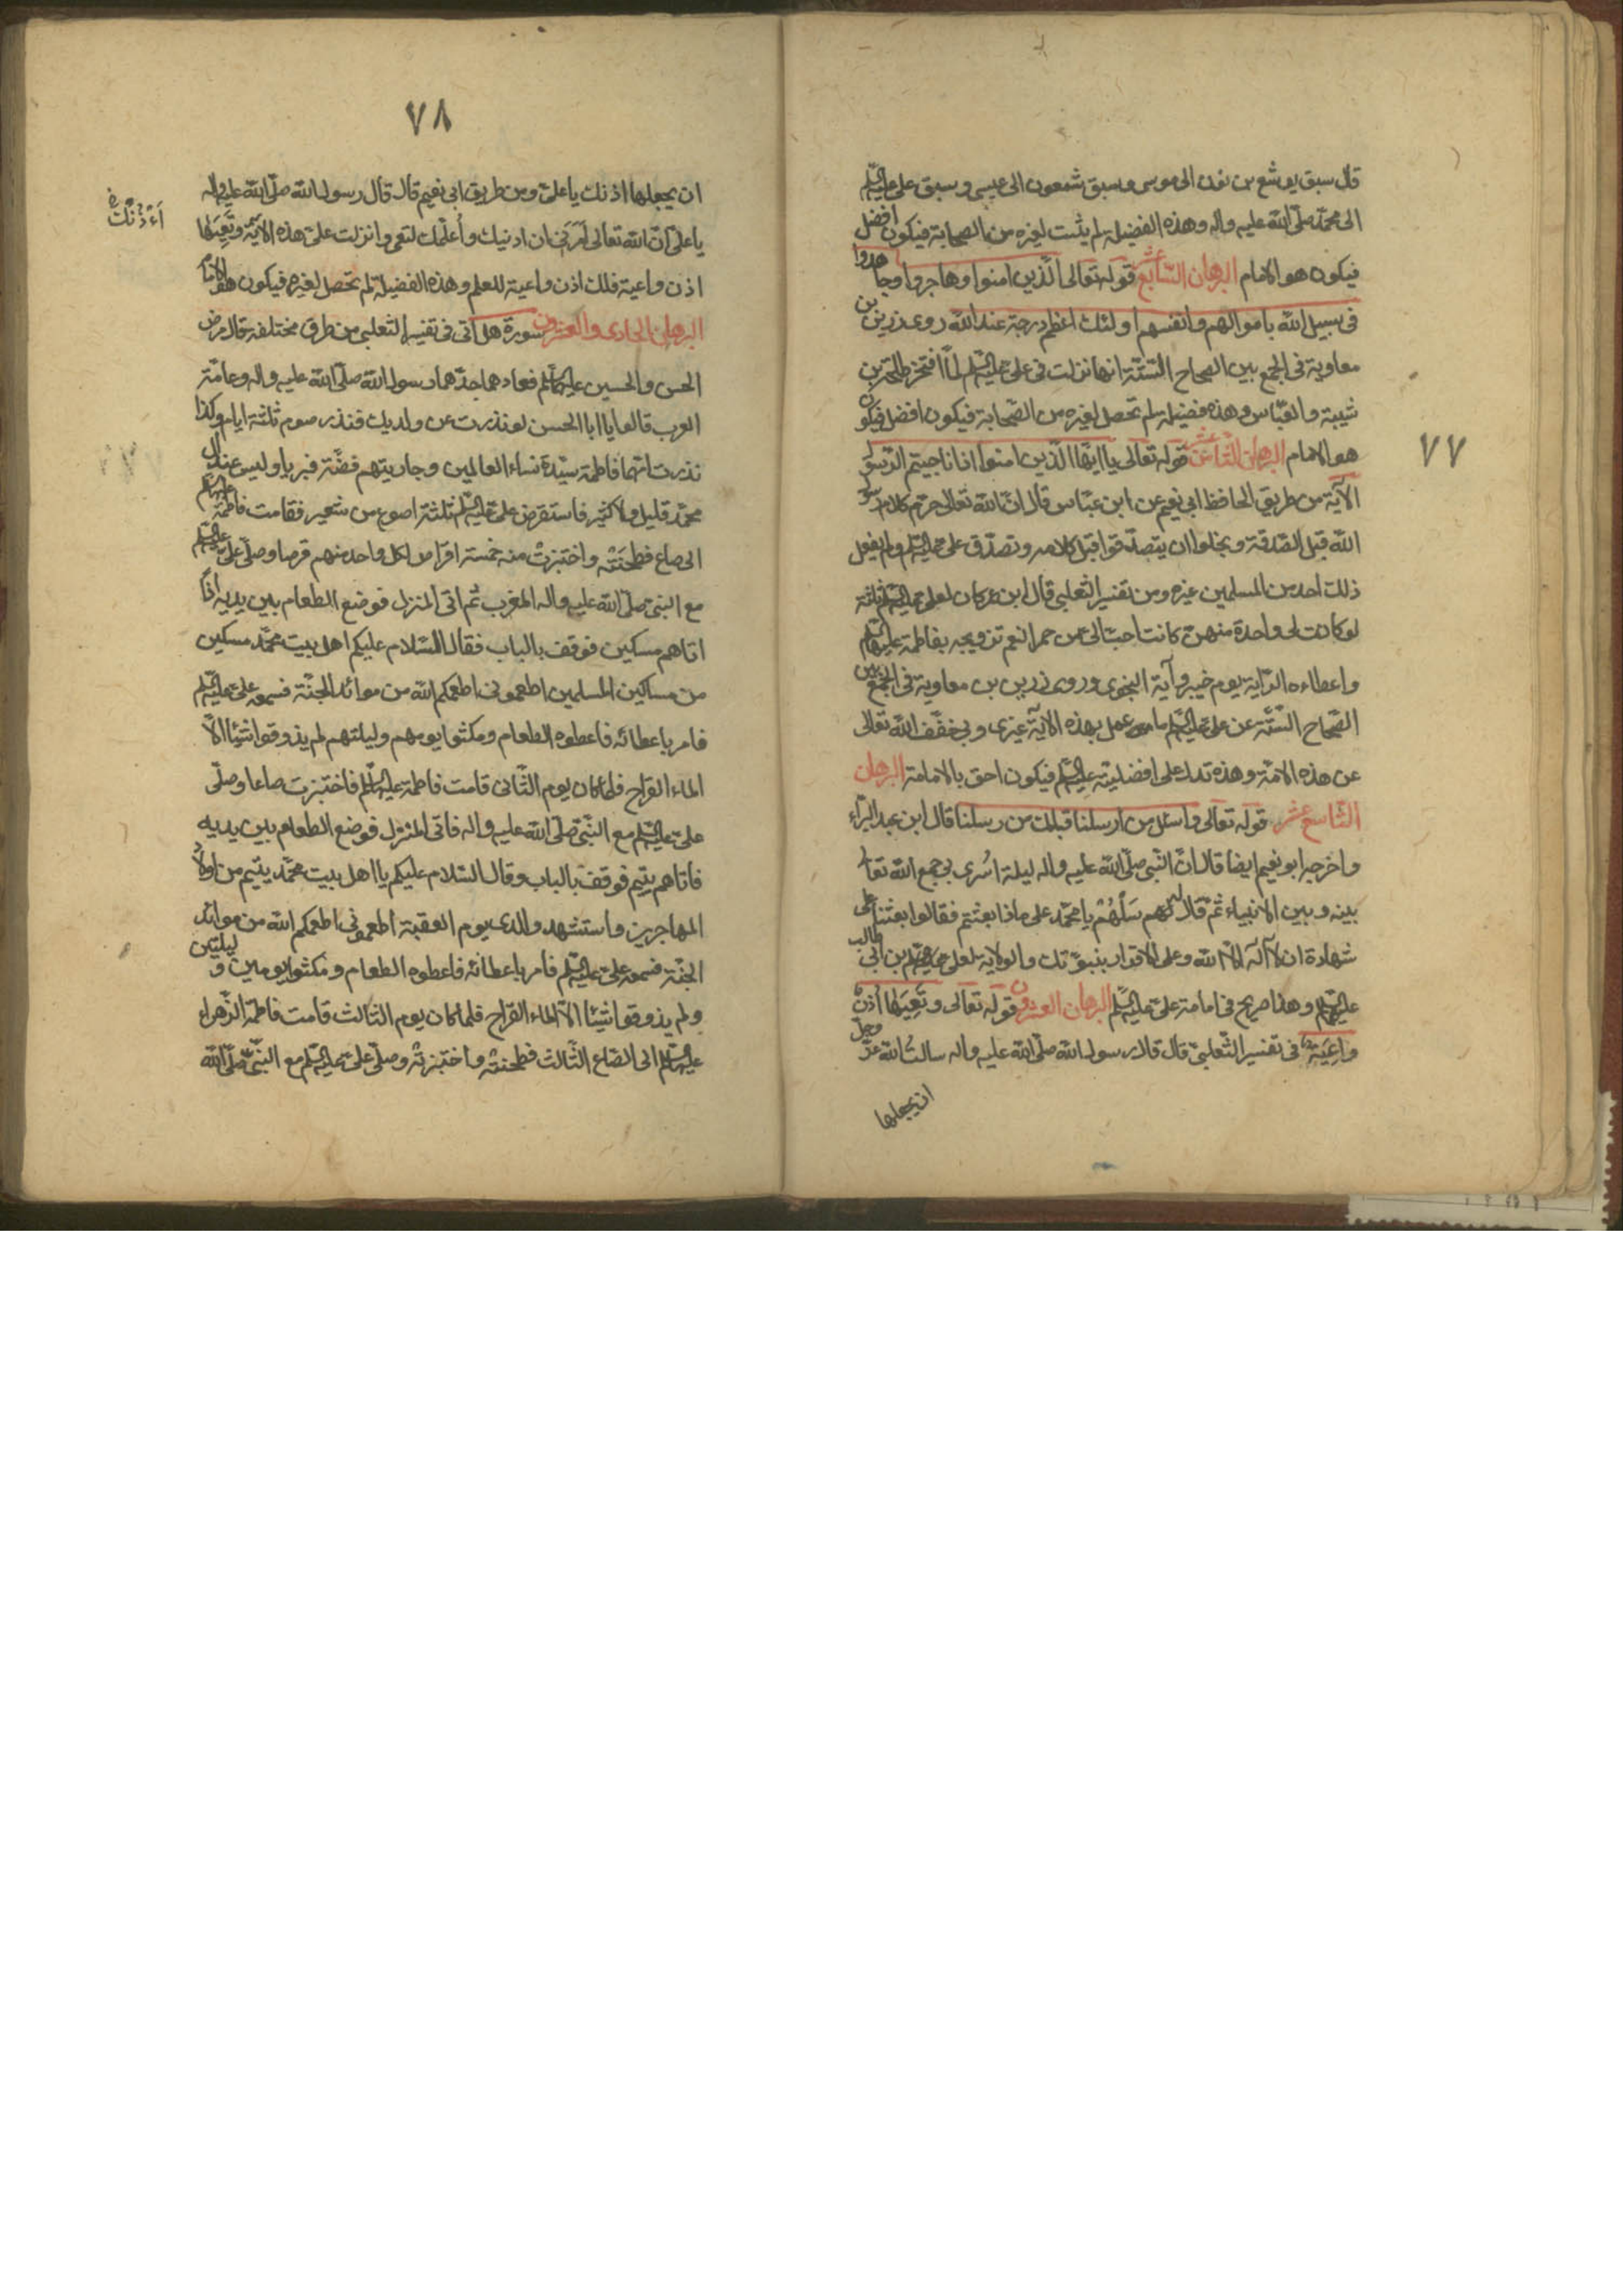 ٧٧
قال سبق يوشع بن نون الى موسى و سبق شمعون الى عيسى و سبق على عليه السلم
الى محمد صلّى الله عليه واله وهذه الفضيلة لم يثبت لغيره من الصحابة فيكون افضل
فيكون هو الامام البرهان السّابع عشر قوله تعالى الّذين امنوا وهاجروا وجاهدوا
فى سبيل الله باموالهم وانفسهم اولئك اعظم درجة عند الله روى رزين بن
معاوية فى الجمع بين الصحاح السّتّة انها نزلت فى علىّ عليه السّلم لمّا افتخر طلحة بن
شيبة والعبّاس وهذه فضيلة لم تحصل لغيره من الصّحابة فيكون افضل فيكون
هو الامام البرهان الثّامن عشر قوله تعالى يا ايّها الّذين امنوا اذا ناجيتم الرّسول
الآية من طريق الحافظ ابى نعيم عن ابن عبّاس قال انّ الله تعالى حرّم كلام رسول
الله قبل الصّدقة وبخلوا ان يتصدّقوا قبل كلامه وتصدّق على عليه السّلم ولم يفعل
ذلك احد من المسلمين غيره ومن تفسير الثعلبى قال ابن عمر كان لعلى عليه السّلم ثلثة
لو كانت لى واحدة منهنّ كانت احبّ الىّ من حمر النعم تزويجه بفاطمة عليها السّلم
واعطاءه الرّاية يوم خيبر وآية النجوى وروى رزين بن معاوية فى الجمع بين
الصّحاح السّتّة عن على عليه السّلم ما عمل بهذه الآية غيرى وبى خفّف الله تعالى
عن هذه الامّة وهذه تدل على افضليته عليه السّلم فيكون احق بالامامة البرهان
التّاسع عشر قوله تعالى واسئل من ارسلنا قبلك من رسلنا قال ابن عبد البرّ
واخرجه ابو نعيم ايضا قال انّ النّبى صلّى الله عليه واله ليلة اُسرى بى جمع الله تعا
بينه وبين الانبياء ثمّ قال لهم سَلْهُمْ يا محمّد على ماذا بعثتم فقالوا بعثنا على
شهادة ان لا آله الّا الله وعلى الاقرار بنبوّتك والولاية لعلى بن ابى طالب
عليه السّلم وهذا صريح فى امامة علىّ عليه السّلم البرهان العشرون قوله تعالى وتَعِيَها اُذنٌ
واعِيَة فى تفسير الثّعلبىّ قال قال رسول الله صلّى الله عليه واله سالتُ الله عزّ وجلّ
ان يجعلها
٧٨
ان يجعلها اذنك يا علىّ ومن طريق ابى نعيم قال قال رسول الله صلّى الله عليه واله
يا علىّ انّ الله تعالى اَمَرَنى ان ادنيك واُعلّمك لتعى وانزلت علىّ هذه الآية وتَعِيَها
اذن واعية فلك اذن واعية للعلم وهذه الفضيلة لم تحصل لغيره فيكون هو الامام
البرهان الحادى والعشرون سورة هل اتى فى تفسير الثعلبى من طرق مختلفة قال مرض
الحسن والحسين عليهما السّلم فعادهما جدّهما رسول الله صلّى الله عليه واله وعامّة
العرب قالوا يا ابا الحسن لو نذرت عن ولديك فنذر صوم ثلثة ايام وكذا
نذرت امّهما فاطمة سيّدة نساء العالمين وجاريتهم فضّة فبريا وليس عند آل
محمّد قليل ولا كثير فاستقرض علىّ عليه السّلم ثلثة اصوع من شعير فقامت فاطمة عليها السّلم
الى صاع فطحَنَتْه واختبزتْ منه خمسة اقراص لكل واحد منهم قرصا وصلّى علىّ عليه السّلم
مع النبىّ صلّى الله عليه واله المغرب ثم اتى المنزل فوضع الطعام بين يديه اذا
اتاهم مسكين فوقف بالباب فقال السّلام عليكم اهل بيت محمّد مسكين
من مساكين المسلمين اطعمونى اطعمكم الله من موائد الجنّة فسمعه علىّ عليه السّلم
فامر باعطائه فاعطوه الطعام ومكثوا يومهم وليلتهم لم يذوقوا شيئا الّا
الماء القراح فلمّا كان يوم الثّانى قامت فاطمة عليها السّلم فاختبزت صاعا وصلّى
علىّ عليه السّلم مع النّبىّ صلّى الله عليه واله فاتى المنزل فوضع الطعام بين يديه
فاتاهم يتيم فوقف بالباب وقال السّلام عليكم يا اهل بيت محمّد يتيم من اولاد
المهاجرين واستشهد والدى يوم العقبة اطعمونى اطعمكم الله من موائد
الجنّة فسمعه علىّ عليه السّلم فامر باعطائه فاعطوه الطعام ومكثوا يومين و ليلتين
ولم يذوقوا شيئا الّا الماء القراح فلمّا كان يوم الثالث قامت فاطمة الزّهراء
عليها السّلم الى الصّاع الثّالث فطحنتْه واختبزتْه وصلّى علىّ عليه السّلم مع النّبىّ صلّى الله